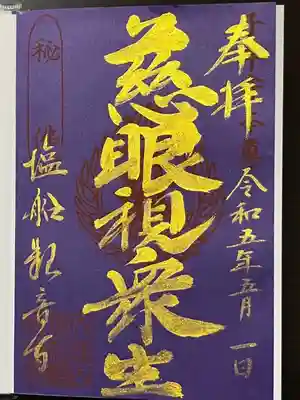 奉拝
令和五年五月一日
慈眼視衆生
塩船観音寺
秘